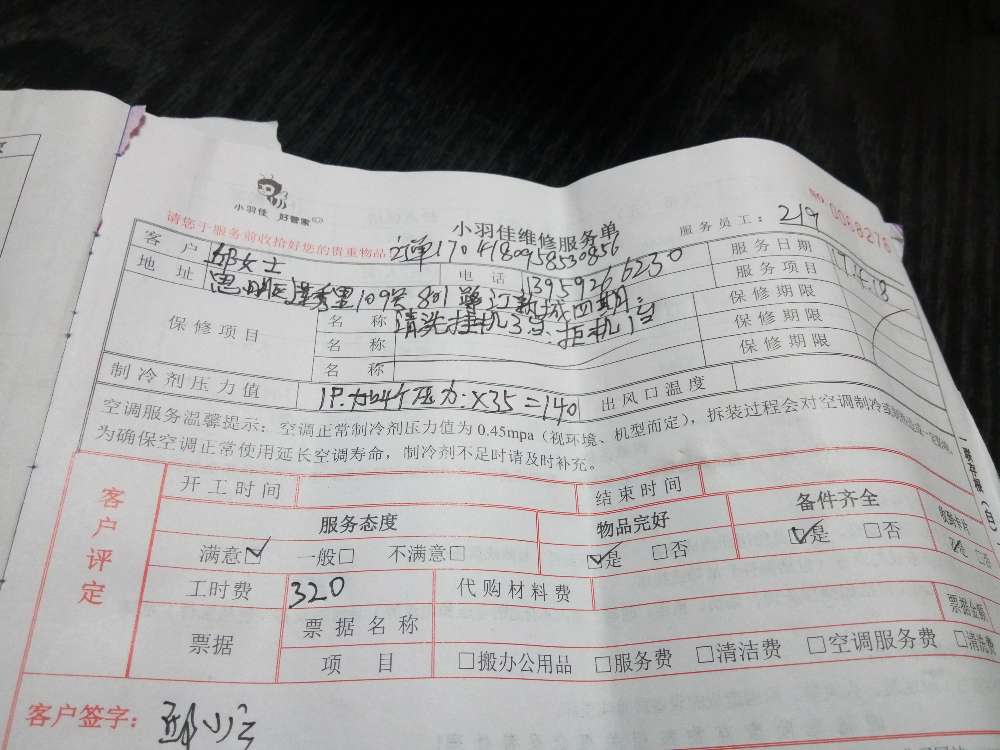 小羽佳 好管家
No 0068276
小羽佳维修服务单
服务员工: 219
请您于服务前收拾好您的贵重物品
客户 邱女士 电话 13959266230 服务日期 17.4.18
地址 109号801 四期 服务项目
保修项目 名称 清洗挂机3台.柜机1台 保修期限
名称 保修期限
名称 保修期限
制冷剂压力值 1P.加4个压力.X35=140 出风口温度
空调服务温馨提示:空调正常制冷剂压力值为0.45mpa(视环境、机型而定),拆装过程会对空调制冷
为确保空调正常使用延长空调寿命,制冷剂不足时请及时补充。
客户评定
开工时间 结束时间
服务态度 物品完好 备件齐全
满意☑ 一般□ 不满意□ ☑是 □否 ☑是 □否 ☑是 □否
工时费 320 代购材料费
票据 票据名称 票据金额
项目 □搬办公用品 □服务费 □清洁费 □空调服务费 □清洗费
客户签字: